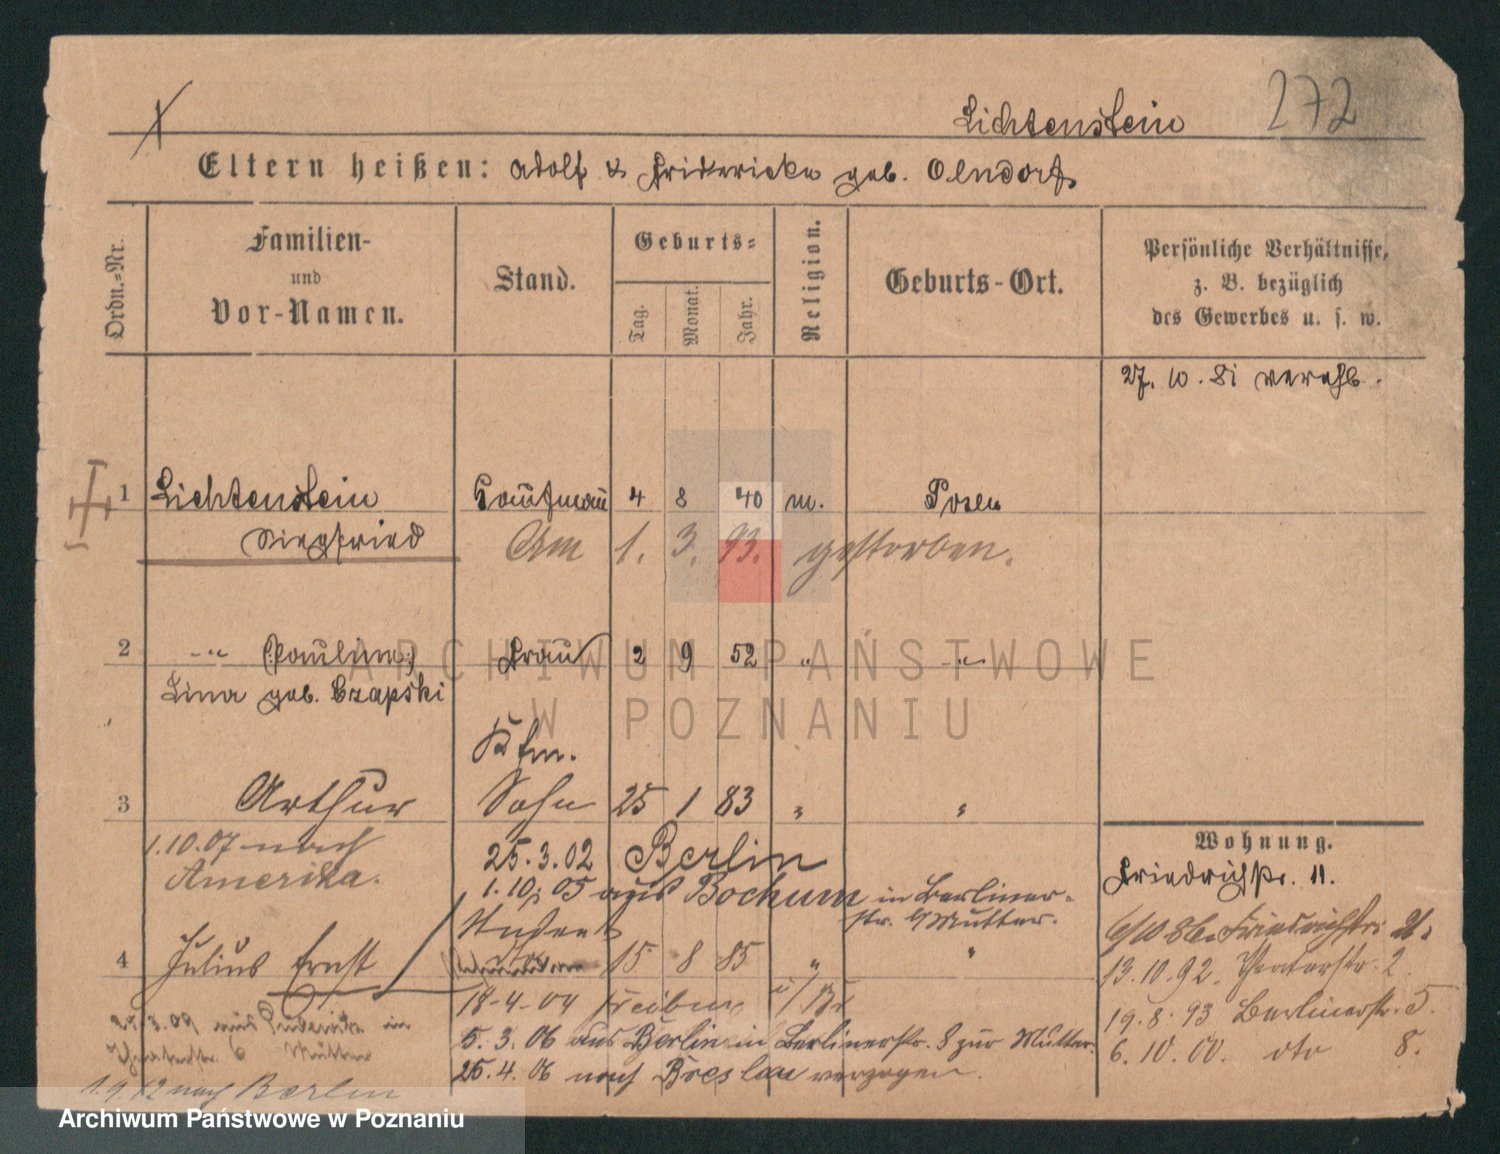 Lichtenstein 272
Eltern heißen: Adolf & Fridericke geb. Olendorf
Ordn.-Nr.
Familien-
und
Vor-Namen.
Stand.
Geburts-
Tag.
Monat.
Jahr.
Religion.
Geburts-Ort.
Persönliche Verhältnisse,
z. B. bezüglich
des Gewerbes u. s. w.
27. 10. 81 verehl.
1 Lichtenstein Kaufmann 4 8 40 m. Posen
Siegfried Am 1. 3. 93. gestorben.
2 -"- (Pauline) Frau 2 9 52 " -"-
Lina geb. Czapski
Kfm.
3 Arthur Sohn 25 1 83 " "
1.10.07 nach 25.3.02 Berlin
Amerika. 1.10.05 aus Bochum in Berliner-
str. 9 Mutter.
Student
4 Julius Ernst 15 8 85 " "
18-4-04 Freiburg i/Br
5.3.06 aus Berlin in Berlinerstr. 8 zur Mutter.
25.4.06 nach Breslau verzogen.
27.3.09 aus in
6 Mutter
1.9.12 nach Berlin
Wohnung.
Friedrichstr. 11.
6/10 86. Friedrichstr. 21.
13.10.92. Theaterstr. 2
19.8.93 Berlinerstr. 5.
6.10.00. dto 8.
ARCHIWUM PAŃSTWOWE
W POZNANIU
Archiwum Państwowe w Poznaniu